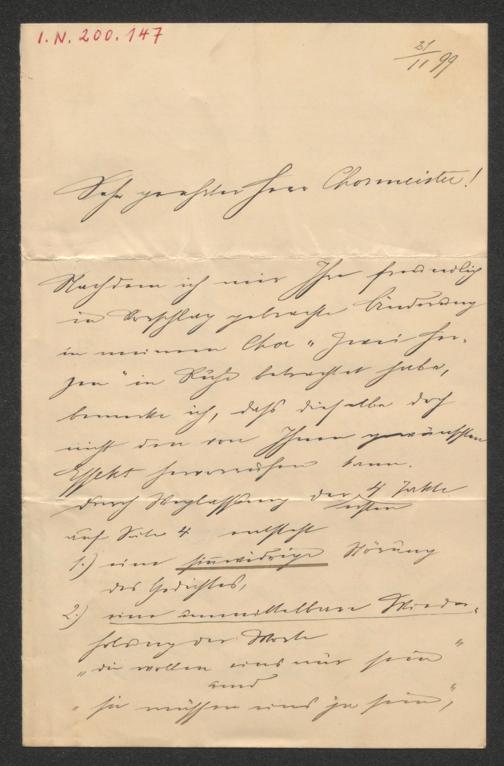 I.N. 200.147
21/11 99
Sehr geehrter Herr Chormeister!
Nachdem ich mir Ihre freundlich
in Vorschlag gebrachte Änderung
in meinem Chor „Zwei Her-
zen" in Ruhe betrachtet habe,
bemerke ich, daſs dieselbe doch
nicht den von Ihnen gewünschten
Effekt hervorrufen kann.
Durch Weglassung der ersten 4 Takte
auf Seite 4 entsteht
1.) eine sinnwidrige Störung
des Gedichtes,
2.) eine unmittelbare Wieder-
holung der Worte
„die wollen eins nur sein"
und
„sie müssen eins ja sein",